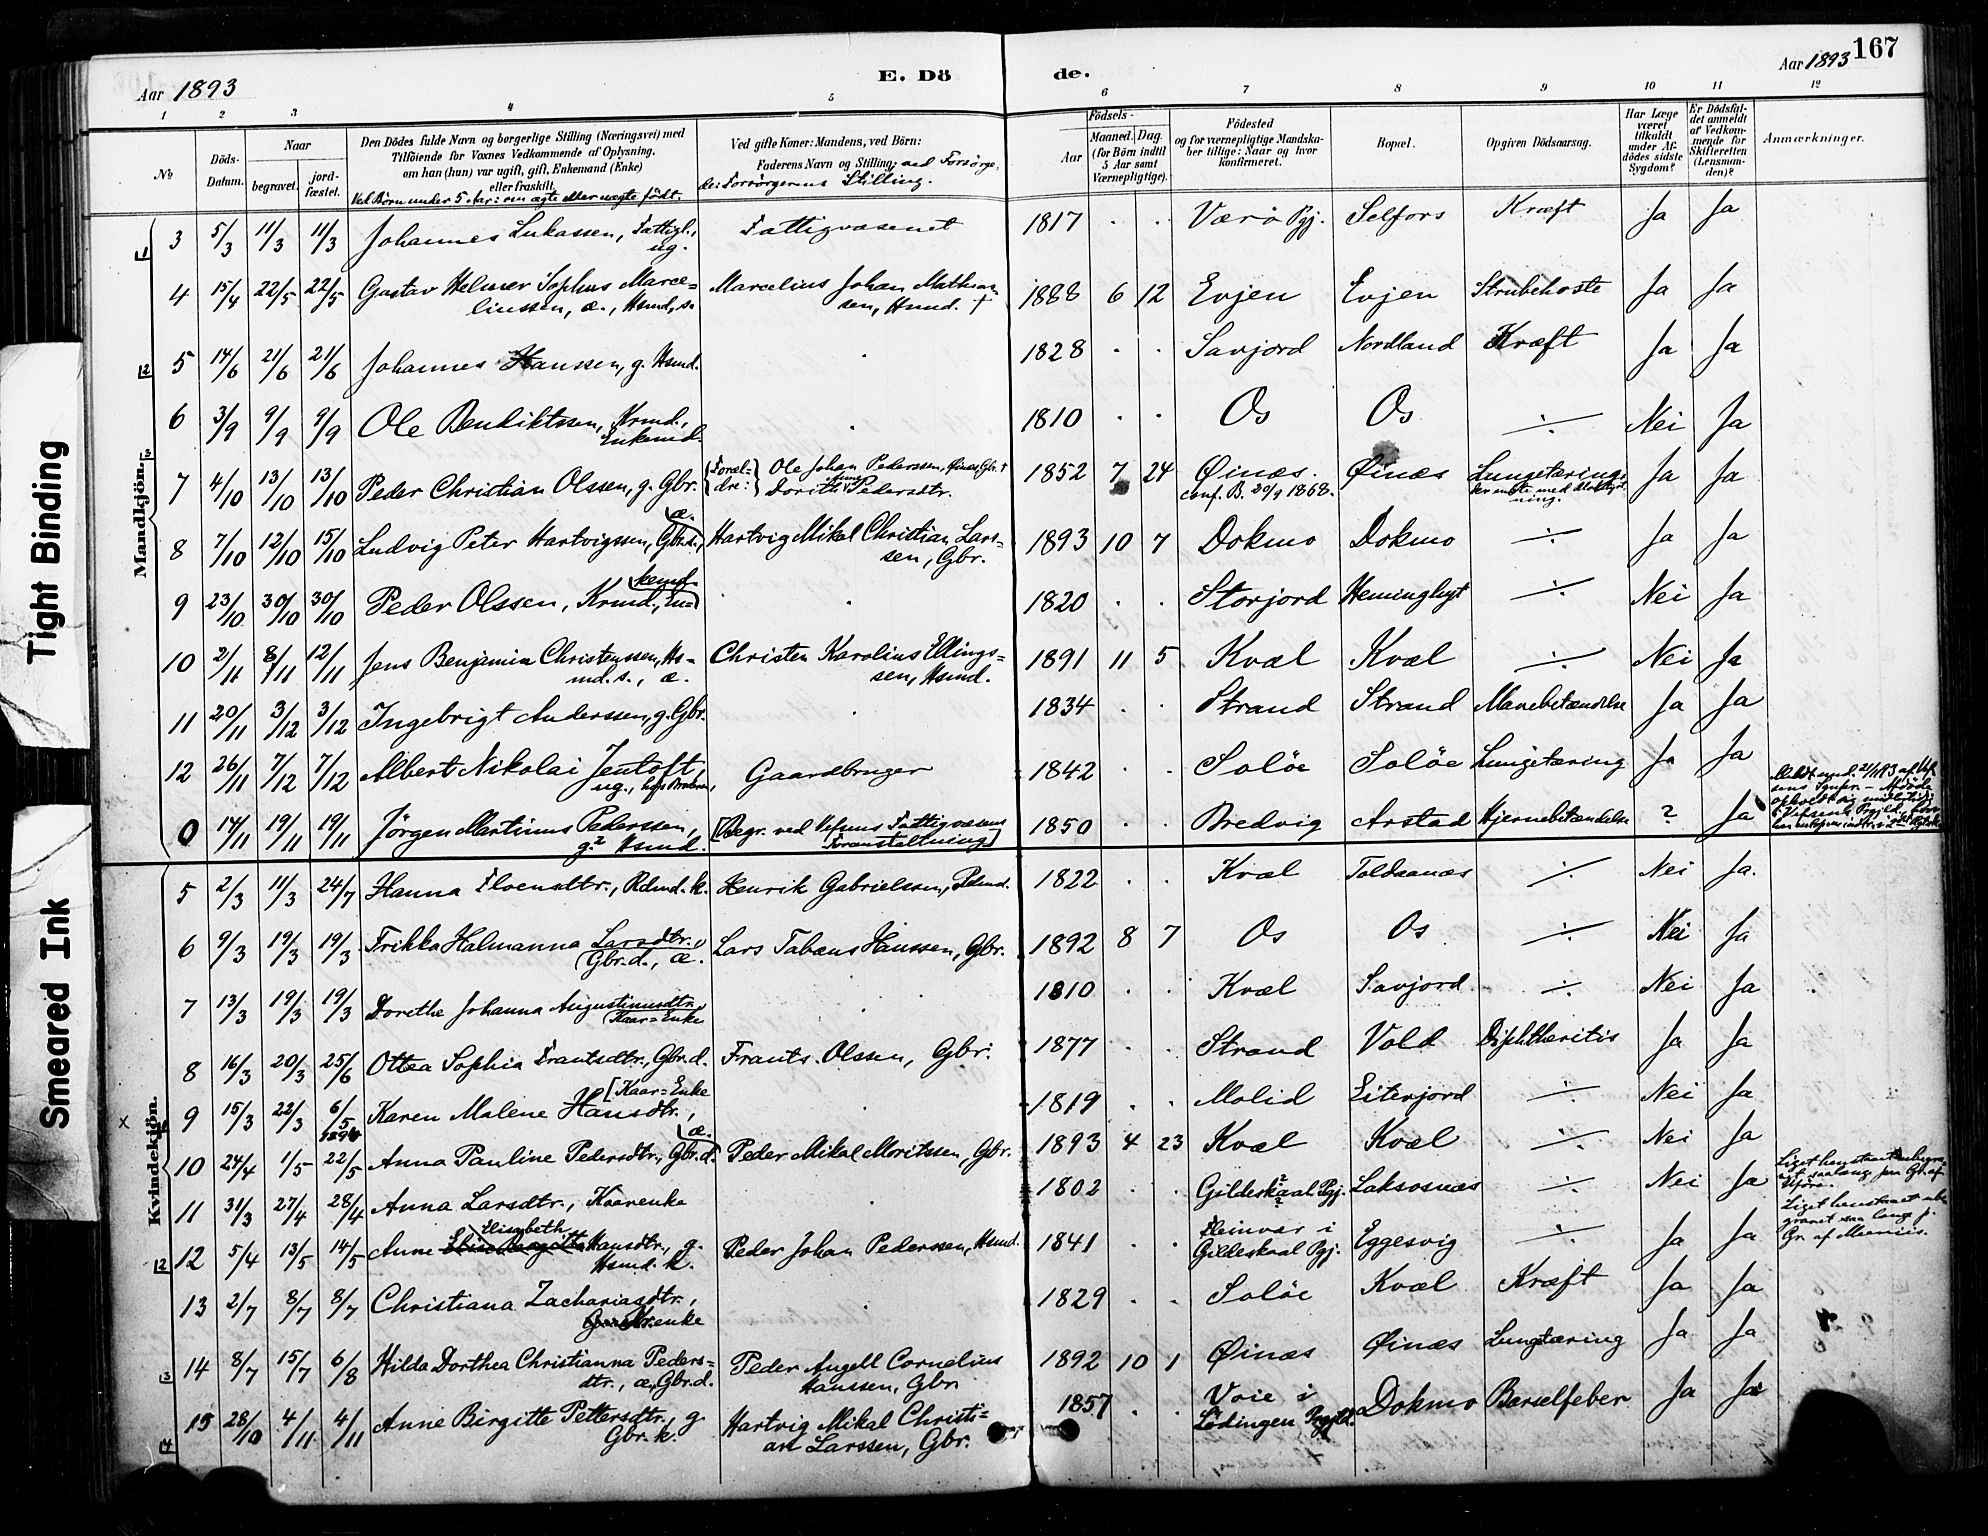 Tight Binding
Smeared Ink
Aar 1893
E. Dö
de.
Aar 1893 167
1 2 3 4 5 6 7 8 9 10 11 12
No
Döds-Datum.
Naar
begravet. jord-fæstet.
Den Dödes fulde Navn og borgerlige Stilling (Næringsvei) med
Tilföiende for Voxnes Vedkommende af Oplysning,
om han (hun) var ugift, gift, Enkemand (Enke)
eller fraskilt.
Ved Børn under 5 Aar: om ægte eller uægte født.
Ved gifte Koner: Mandens, ved Börn:
Faderens Navn og Stilling; ved Forsørge-
de: Forsørgerens Stilling.
Födsels-
Aar
Maaned. Dag.
(for Börn indtil
5 Aar samt
Værnepligtige).
Födested
og for værnepligtige Mandska-
ber tillige: Naar og hvor
konfirmeret.
Bopæl.
Opgiven Dödsaarsag.
Har Læge
været
tilkaldt
under Af-
dödes sidste
Sygdom?
Er Dödsfal-
det anmeldt
af Vedkom-
mende for
Skifteretten
(Lensman-
den)?
Anmærkninger.
Mandkjön.
3 5/3 11/3 11/3 Johannes Lukassen, Fattigl., ug. Fattigvæsenet 1817 . . Værö Pgj. Selfors Kræft Ja Ja
4 15/4 22/5 22/5 Gustav Helmer Sophus Marce-
linssen, æ., Hsmd. s. Marcelius Johan Mathias-
sen, Hsmd. + 1888 6 12 Evjen Evjen Strubehoste Ja Ja
5 14/6 21/6 21/6 Johannes Hanssen, g. Hsmd. . 1828 . . Savjord Nordland Kræft Ja Ja
6 3/9 9/9 9/9 Ole Bendiktssen, Krmd.,
Enkemd. . 1810 . . Os Os ÷ Nei Ja
7 4/10 13/10 13/10 Peder Christian Olssen, g. Gbr. {Foræl-
dre:} Ole Johan Pederssen, Øinæs, Gbr. +
Dorith Pedersdtr. 1852 7 24 Øinæs.
conf. B. 20/9 1868. Øinæs Lungetæring, Ja Ja
8 7/10 12/10 15/10 Ludvig Peter Hartvigssen, Gbr.s., æ. Hartvig Mikal Christian Lars-
sen, Gbr. 1893 10 7 Dokmo Dokmo ÷ Ja Ja
9 23/10 30/10 30/10 Peder Olssen, Krmd., En-
kemd. . 1820 . . Storjord Heminghyt ÷ Nei Ja
10 2/11 8/11 12/11 Jens Benjamin Christenssen, Hs-
md. s., æ. Christen Karolius Ellings-
sen, Hsmd. 1891 11 5 Kvæl Kvæl ÷ Nei Ja
11 20/11 3/12 3/12 Ingebrigt Anderssen, g. Gbr. . 1834 . . Strand Strand Mavebetændelse Ja Ja
12 26/11 7/12 7/12 Albert Nikolai Jentoft,
ug., Gaardbruger 1842 . . Solöe Solöe Lungetæring Ja Ja
0 14/11 19/11 19/11 Jörgen Martinus Pederssen,
g. Hsmd. [Begr. ved Vefsens Fattigvæsens
Foranstaltning] 1850 . . Bredvig Arstad Hjernebetændelse ? Ja
Kvindekjön.
5 2/3 11/3 24/7 Hanna Floensdtr., Rdmd. k. Henrik Gabrielssen, Rdmd. 1822 . . Kvæl Toldsanæs ÷ Nei Ja.
6 9/3 19/3 19/3 Frikka Halmanna Larsdtr.,
Gbr.d., æ. Lars Tabæus Hanssen, Gbr. 1892 8 7 Os Os ÷ Nei Ja
7 13/3 19/3 19/3 Dorethe Johanna Augustinusdtr.,
Kaar-Enke . 1810 . . Kvæl Savjord ÷ Nei Ja
8 16/3 20/3 25/6 Ottea Sophia Frantsdtr., Gbr.d. Frants Olssen, Gbr. 1877 . . Strand Vold Diphtheritis Ja Ja
x 9 15/3 22/3 6/5 1894 Karen Malene Hansdtr.,
[Kaar-Enke . 1819 . . Molid Eiterjord ÷ Nei Ja
10 24/4 1/5 22/5 Anna Pauline Pedersdtr., Gbr.d. æ. Peder Mikal Moritssen, Gbr. 1893 4 23 Kvæl Kvæl ÷ Nei Ja
11 31/3 27/4 28/4 Anna Larsdtr., Kaarenke . 1802 . . Gildeskaal Pgj. Laksosnæs ÷ Nei Ja
12 5/4 13/5 14/5 Anne Elisabeth Hansdtr., g.
Hsmd. k. Peder Johan Pederssen, Hsmd. 1841 . . Fleinvær i
Gildeskaal Pgj. Eggesvig ÷ Ja Ja Liget henstaaet ube-
gravet saa længe p.
Gr. af
13 2/7 8/7 8/7 Christiana Zachariasdtr.,
Kr.enke . 1829 . . Solöe Kvæl Kræft Ja Ja
14 8/7 15/7 6/8 Hilda Dorthea Christianna Peders-
dtr., æ, Gbr.d. Peder Angell Cornelius
Hanssen, Gbr. 1892 10 1 Øinæs Øinæs Lungetæring Ja Ja
15 28/10 4/11 4/11 Anne Birgitte Pettersdtr., g.
Gbr. k. Hartvig Mikal Christi-
an Larssen, Gbr. 1857 . . Voie i
Lödingen Prgjld. Dokmo Barselfeber Ja Ja